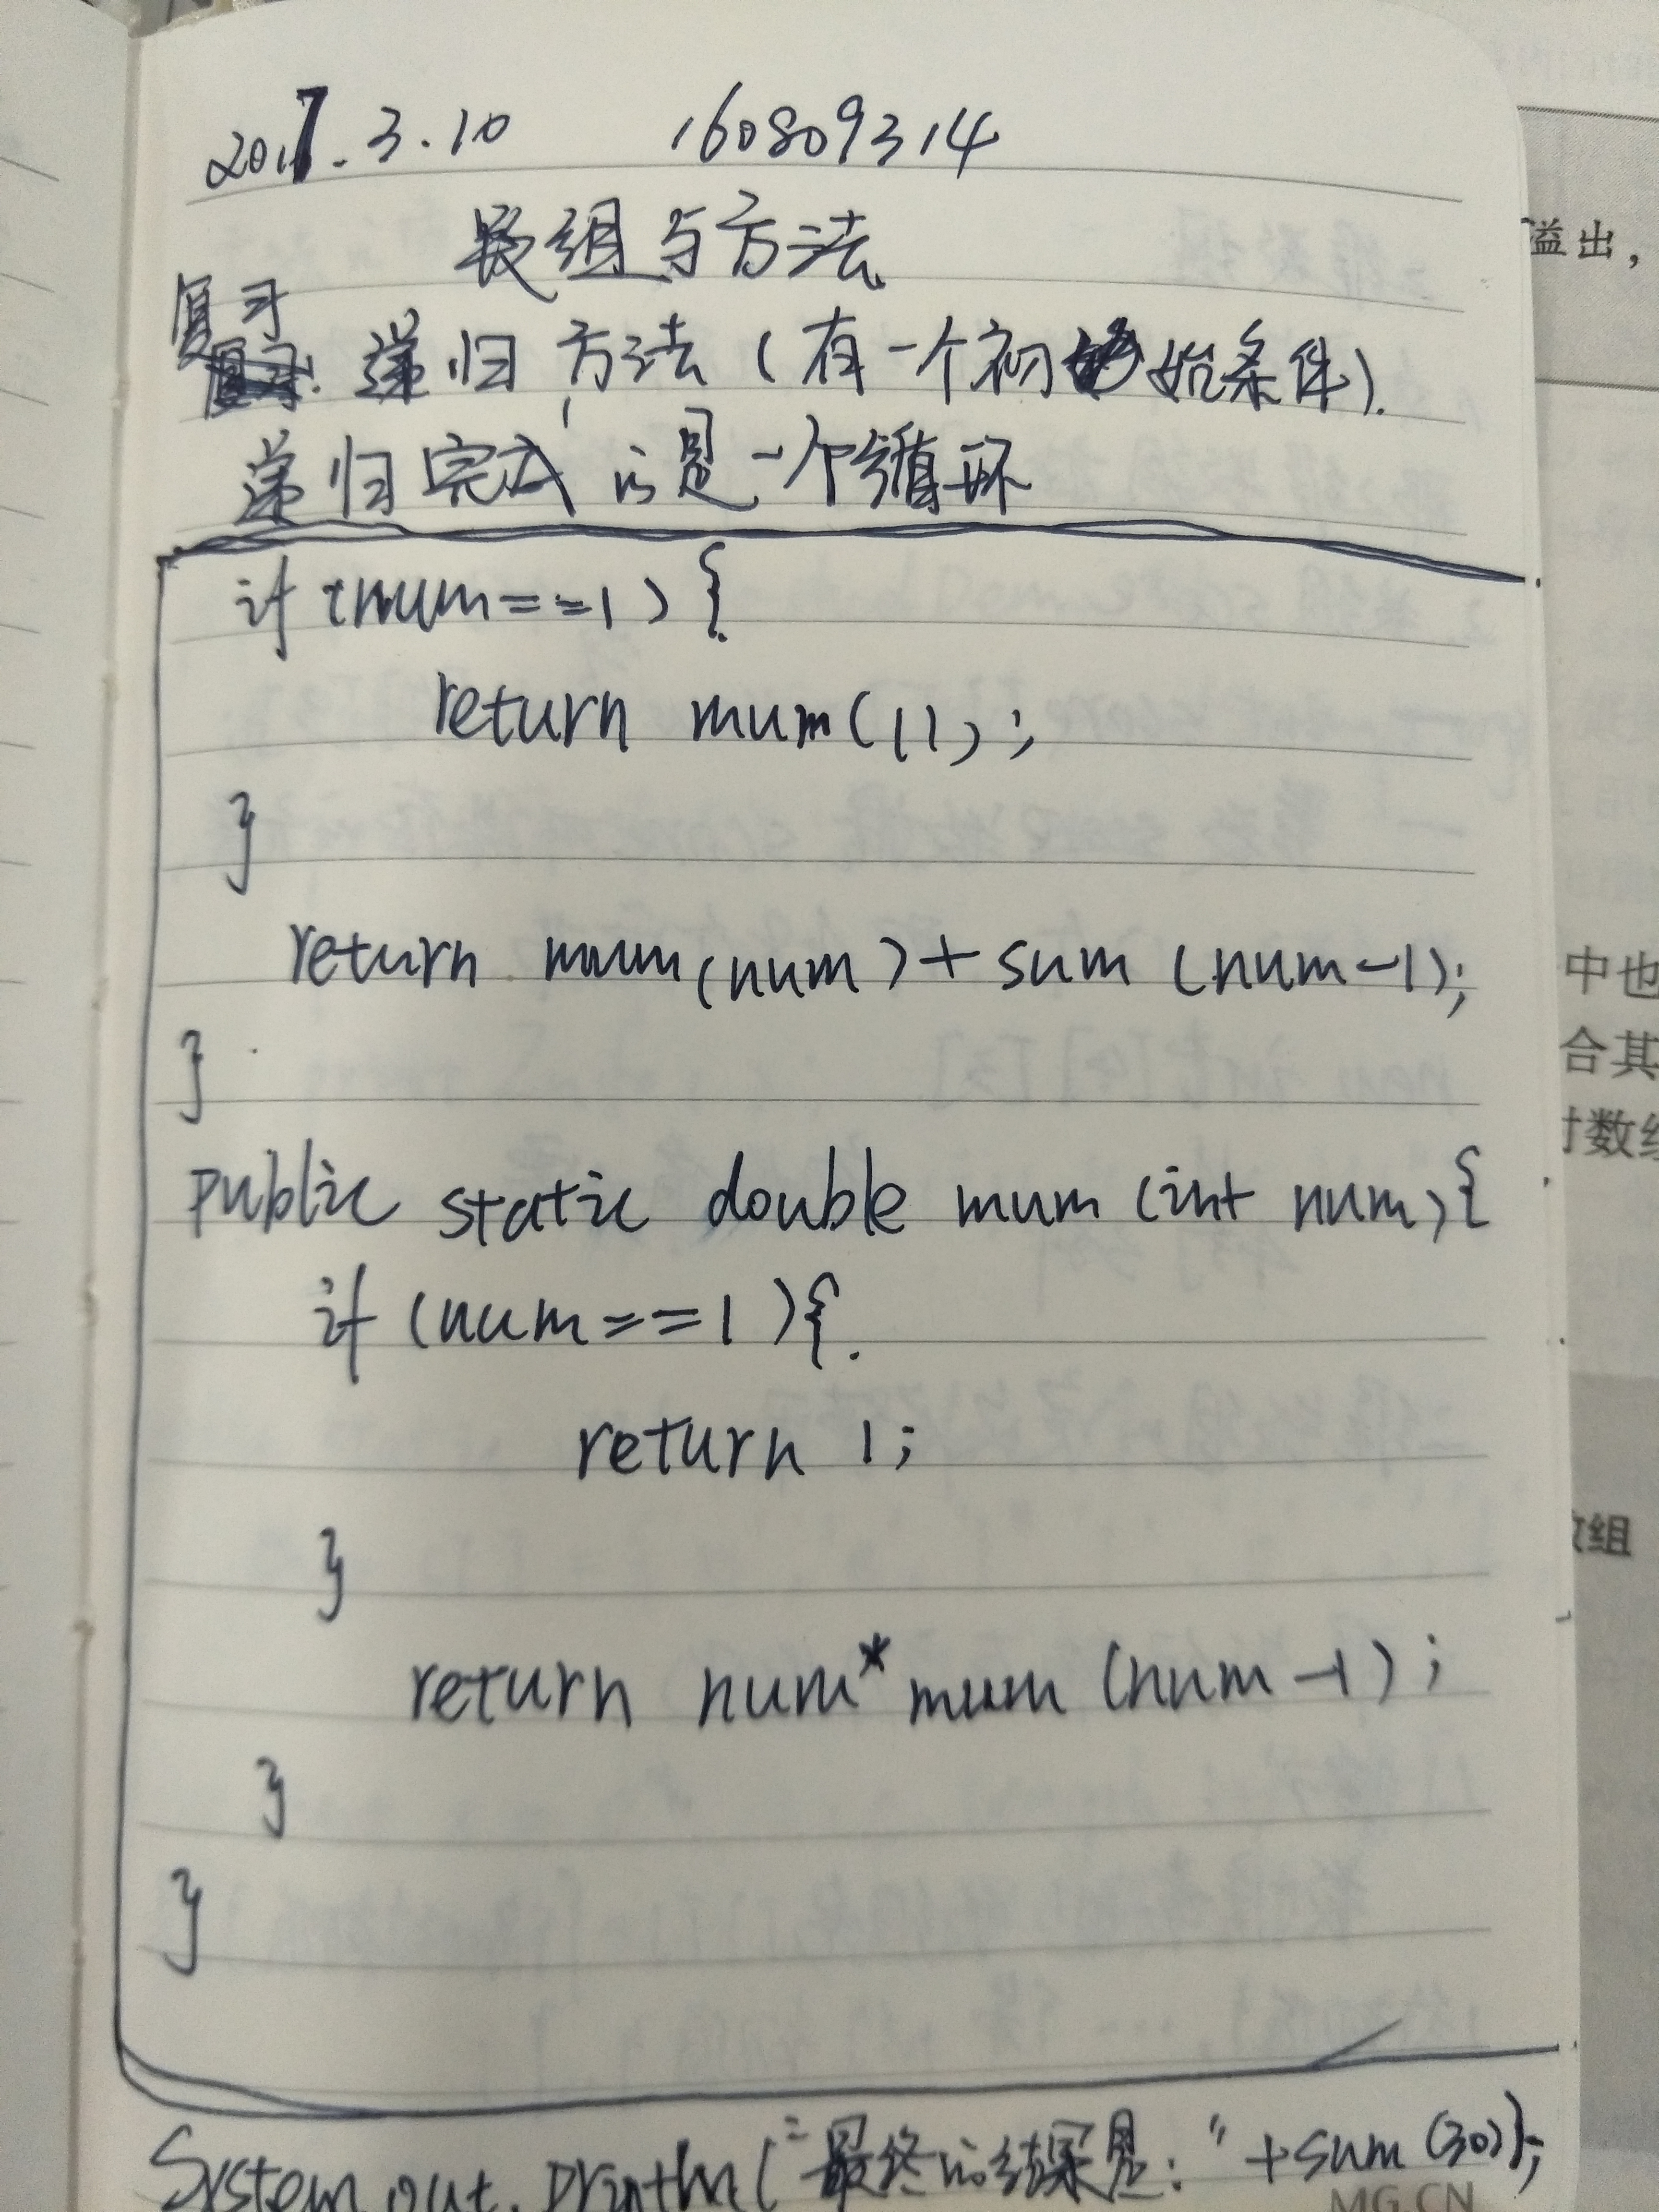 2017.3.10 160809314
数组与方法
复习
递归方法(有一个初始条件).
递归完成的是一个循环
if (num==1) {
return mum(1);
}
return mum(num)+sum (num-1);
}
public static double mum (int num){
if (num==1){
return 1;
}
return num*mum (num-1);
}
}
System.out.println("最终的结果是:"+sum(30));
溢出,
中也
合其
数组
MG.CN